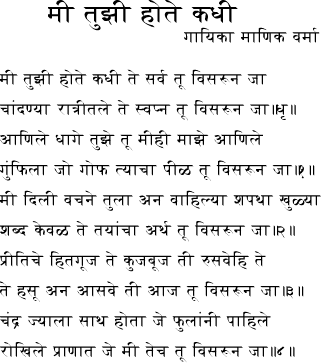 मी तुझी होते कधी
गायिका माणिक वर्मा
मी तुझी होते कधी ते सर्व तू विसरून जा
चांदण्या रात्रीतले ते स्वप्न तू विसरून जा॥धृ॥
आणिले धागे तुझे तू मीही माझे आणिले
गुंफिला जो गोफ त्याचा पीळ तू विसरून जा॥१॥
मी दिली वचने तुला अन वाहिल्या शपथा खुळ्या
शब्द केवळ ते तयांचा अर्थ तू विसरून जा॥२॥
प्रीतिचे हितगूज ते कुजबूज ती रुसवेहि ते
ते हसू अन आसवे ती आज तू विसरून जा॥३॥
चंद्र ज्याला साथ होता जे फुलांनी पाहिले
रोखिले प्राणात जे मी तेच तू विसरून जा॥४॥